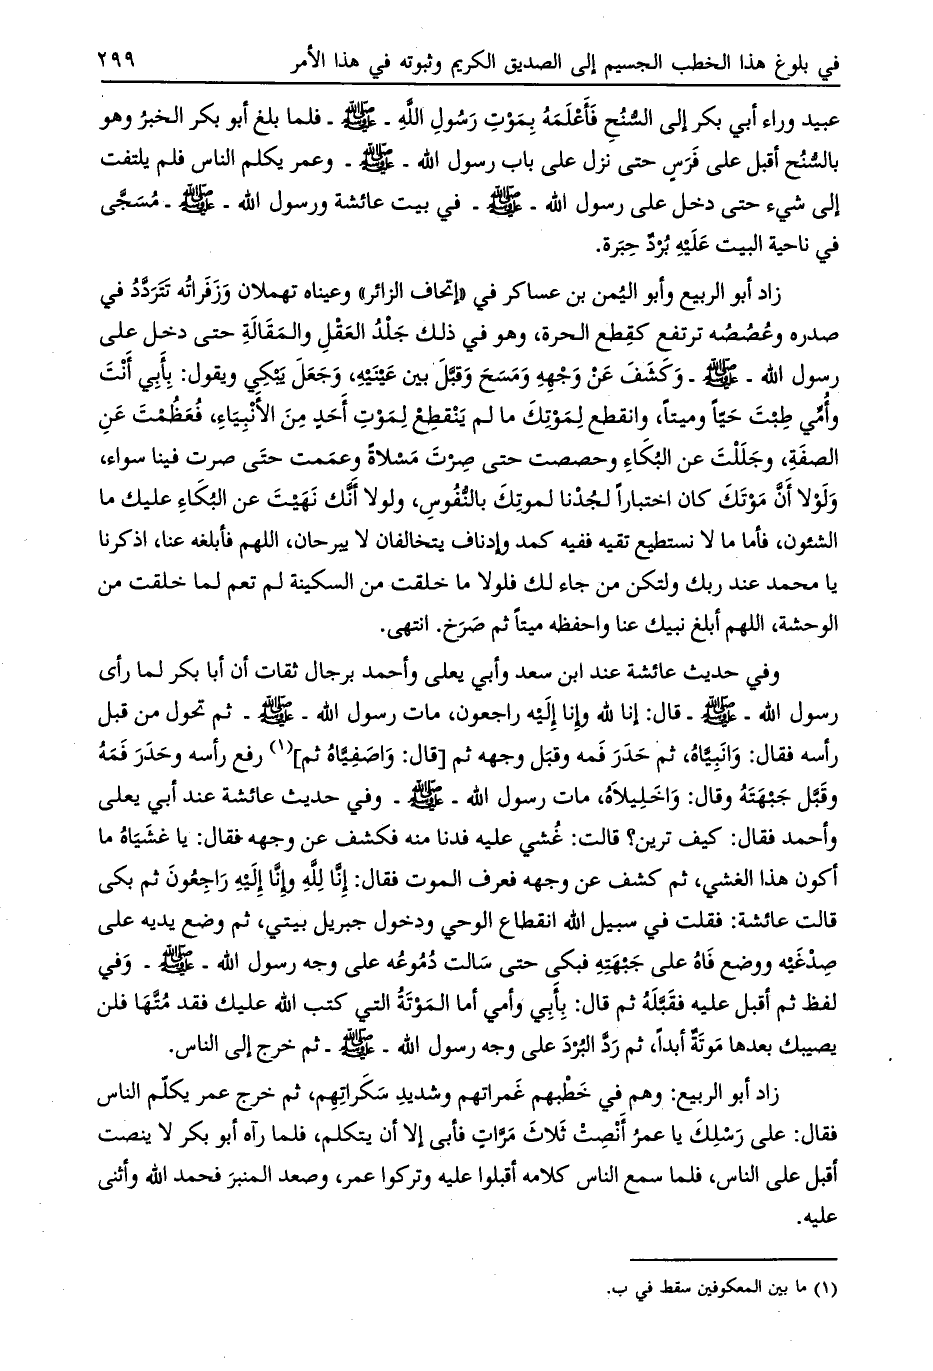 في بلوغ هذا الخطب الجسيم إلى الصديق الكريم وثبوته في هذا الأمر ٢٩٩
عبيد وراء أبي بكر إلى السُّنُحِ فَأَعْلَمَهُ بِمَوْتِ رَسُولِ اللَّهِ ـ ﷺ ـ فلما بلغ أبو بكر الخبرُ وهو
بالسُّنُح أقبل على فَرَسٍ حتى نزل على باب رسول الله ـ ﷺ ـ وعمر يكلم الناس فلم يلتفت
إلى شيء حتى دخل على رسول الله ـ ﷺ ـ في بيت عائشة ورسول الله ـ ﷺ ـ مُسَجَّى
في ناحية البيت عَلَيْهِ بُرْدٌ حِبَرة.
زاد أبو الربيع وأبو اليُمن بن عساكر في «إتحاف الزائر» وعيناه تهملان وَزَفَراتُه تَتَرَدَّدُ في
صدره وغُصُصُه ترتفع كقِطع الحرة، وهو في ذلك جَلْدُ العَقْلِ والمَقَالَةِ حتى دخل على
رسول الله ـ ﷺ ـ وَكَشَفَ عَنْ وَجْهِهِ وَمَسَحَ وَقبَّلَ بين عَيْنَيْهِ، وَجَعَلَ يَبْكِي ويقول: بِأَبِي أَنْتَ
وأُمِّي طِبْتَ حَيّاً وميتاً، وانقطع لِمَوْتِكَ ما لم يَنْقطِعْ لِمَوْتِ أَحَدٍ مِنَ الأَنْبِيَاءِ، فَعَظُمْتَ عَنِ
الصفَةِ، وجَلَلْتَ عن البُكَاءِ وحصصت حتى صِرْتَ مَسْلاةً وعممت حتَى صرت فينا سواء،
وَلَوْلا أَنَّ مَوْتَكَ كان اختباراً لجُدْنا لموتِكَ بالنُّفُوسِ، ولولا أَنَّك نَهَيْتَ عن البُكَاءِ عليك ما
الشئون، فأما ما لا نستطيع تقيه ففيه كمد وإدناف يتخالفان لا يبرحان، اللهم فأبلغه عنا، اذكرنا
يا محمد عند ربك ولتكن من جاء لك فلولا ما خلقت من السكينة لم تعم لما خلقت من
الوحشة، اللهم أبلغ نبيك عنا واحفظه ميتاً ثم صَرَخ. انتهى.
وفي حديث عائشة عند ابن سعد وأبي يعلى وأحمد برجال ثقات أن أبا بكر لما رأى
رسول الله ـ ﷺ ـ قال: إنا لله وإنا إلَيْه راجعون، مات رسول الله ـ ﷺ ـ ثم تحول من قبل
رأسه فقال: وَانَبِيَّاهُ، ثم حَدَرَ فَمه وقبَل وجهه ثم [قال: وَاصَفِيَّاهُ ثم](١) رفع رأسه وحَدَرَ فَمَهُ
وقَبَّل جَبْهَتَهُ وقال: وَاخَلِيلاَهُ، مات رسول الله ـ ﷺ ـ وفي حديث عائشة عند أبي يعلى
وأحمد فقال: كيف ترين؟ قالت: غُشي عليه فدنا منه فكشف عن وجهه فقال: يا غشَيَاهُ ما
أكون هذا الغشي، ثم كشف عن وجهه فعرف الموت فقال: إِنَّا لِلَّهِ وإِنَّا إِلَيْهِ رَاجِعُونَ ثم بكى
قالت عائشة: فقلت في سبيل الله انقطاع الوحي ودخول جبريل بيتي، ثم وضع يديه على
صِدْغَيْه ووضع فَاهُ على جَبْهَتِهِ فبكى حتى سَالت دُمُوعُه على وجه رسول الله ـ ﷺ ـ وَفي
لفظ ثم أقبل عليه فقَبَّلَهُ ثم قال: بِأَبِي وأمي أما المَوْتَةُ التي كتب الله عليك فقد مُتَّهَا فلن
يصيبك بعدها مَوتَةٌ أبداً، ثم رَدَّ البُرْدَ على وجه رسول الله ـ ﷺ ـ ثم خرج إلى الناس.
زاد أبو الربيع: وهم في خَطْبهم غَمراتهم وشديدِ سَكَراتِهِم، ثم خرج عمر يكلّم الناس
فقال: على رَسْلِكَ يا عمرُ أَنْصِتْ ثَلاثَ مَرَّاتٍ فأبى إلا أن يتكلم، فلما رآه أبو بكر لا ينصت
أقبل على الناس، فلما سمع الناس كلامه أقبلوا عليه وتركوا عمر، وصعد المنبرَ فحمد الله وأثنى
عليه.
(١) ما بين المعكوفين سقط في ب.